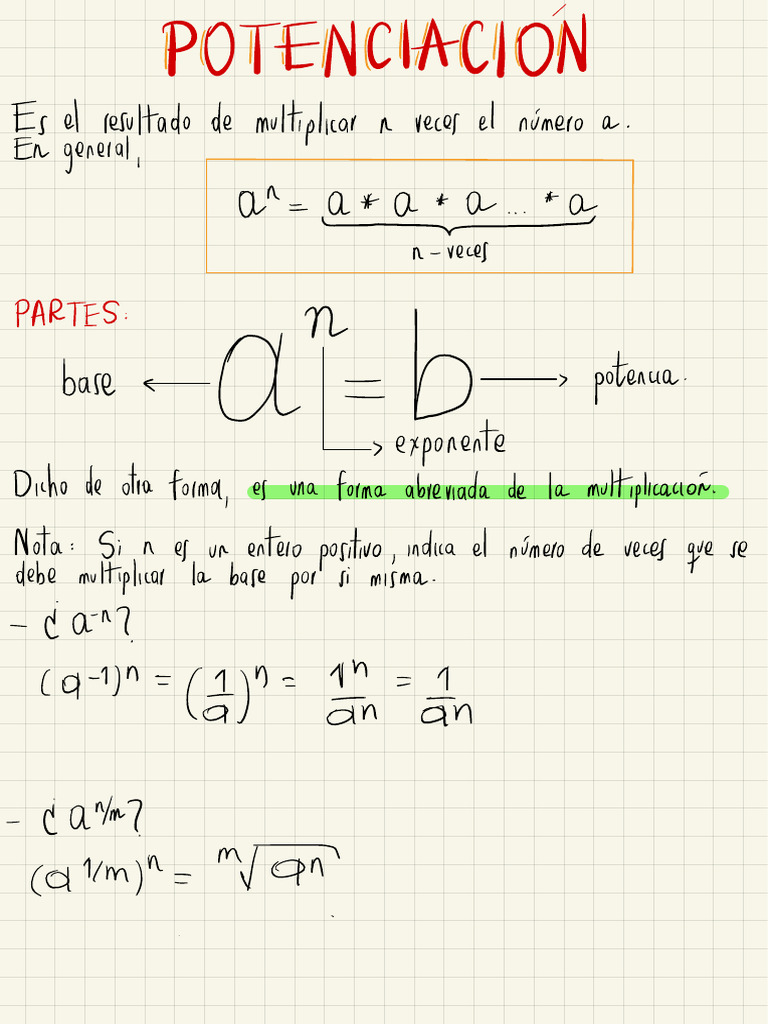 POTENCIACIÓN
Es el resultado de multiplicar n veces el número a.
En general,
aⁿ = a * a * a ... * a
n - veces
PARTES:
base ← aⁿ = b → potencia.
→ exponente
Dicho de otra forma, es una forma abreviada de la multiplicación.
Nota: Si n es un entero positivo, indica el número de veces que se
debe multiplicar la base por si misma.
- ¿a⁻ⁿ?
(a⁻¹)ⁿ = (1/a)ⁿ = 1ⁿ/aⁿ = 1/aⁿ
- ¿a^(n/m)?
(a^(1/m))ⁿ = ᵐ√aⁿ